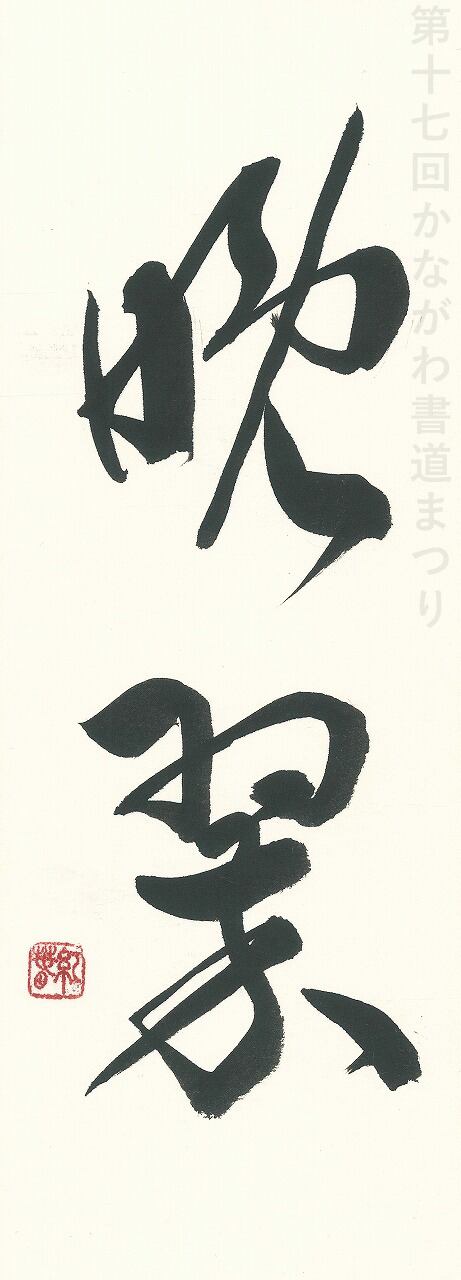 第十七回かながわ書道まつり
晩翠